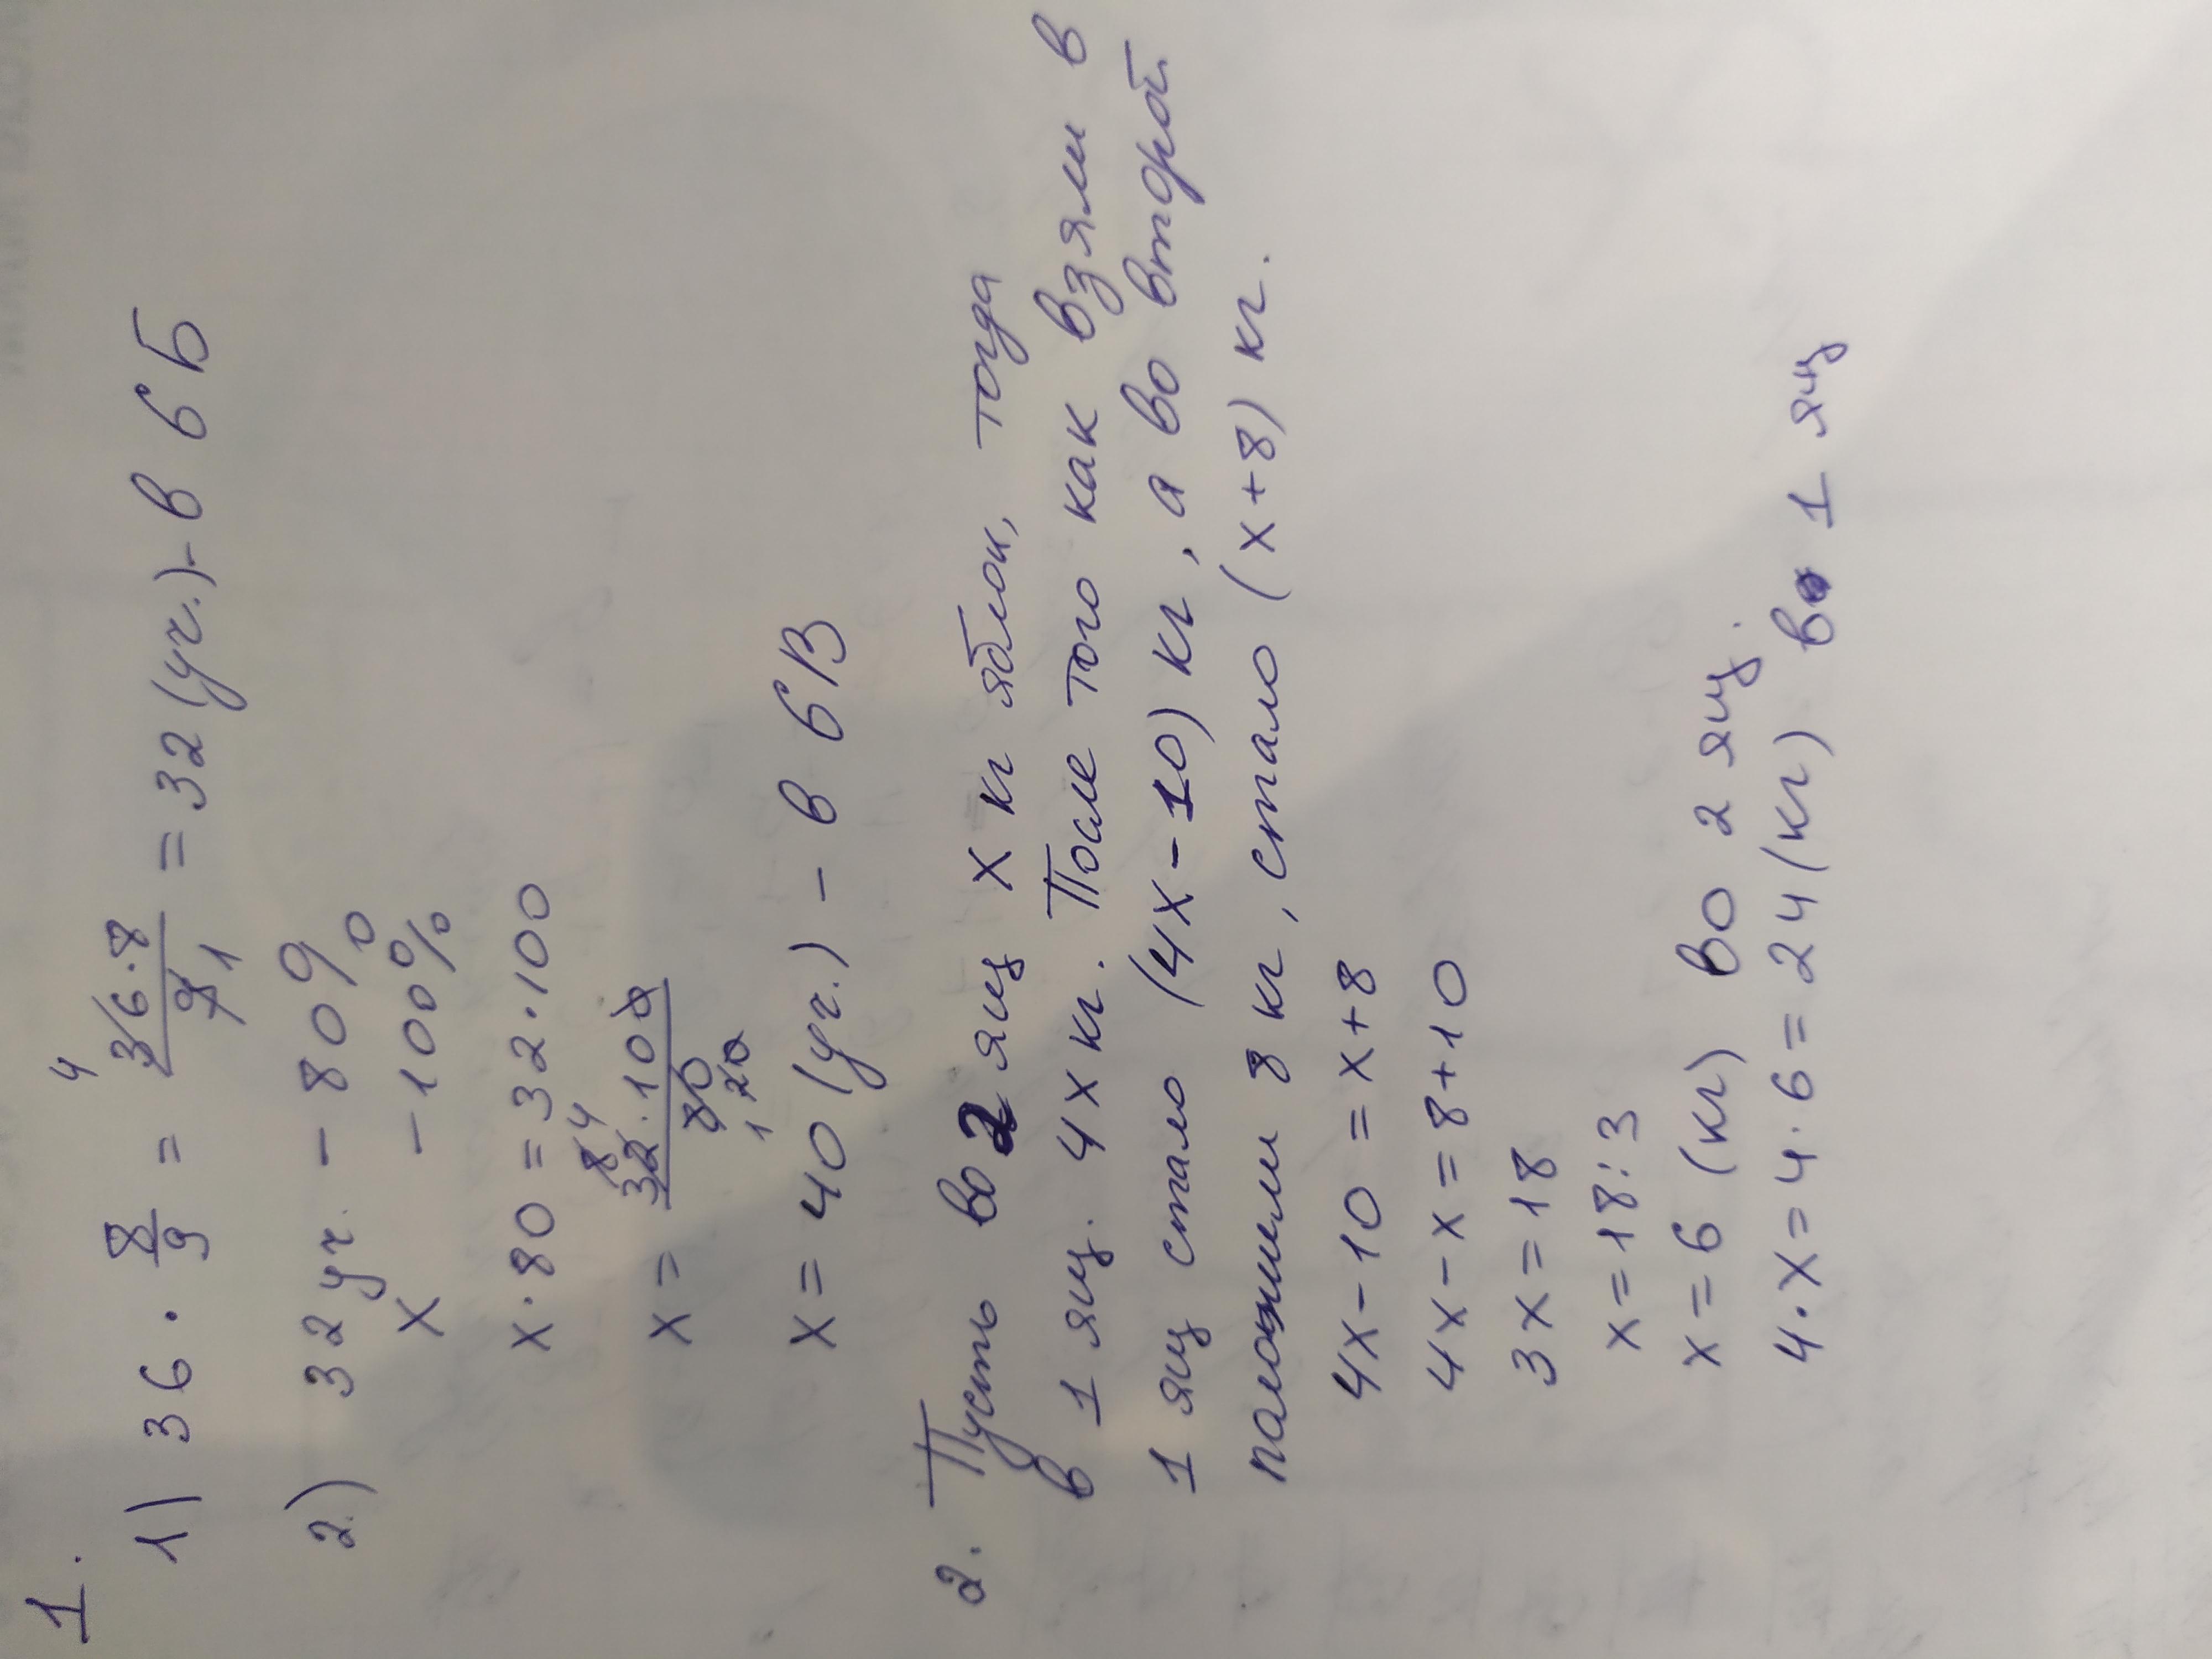 1.
1) 36 · 8/9 = 36·8/9 = 32 (уч.) - в 6 Б
4
1
2) 32 уч. - 80%
х - 100%
х · 80 = 32 · 100
х = 32 · 100/80
8 4
20
1
х = 40 (уч.) - в 6В
2. Пусть во 2 ящ х кг яблок, тогда
в 1 ящ. 4х кг. После того как взяли в
1 ящ стало (4х-10) кг, а во второй
положили 8 кг, стало (х+8) кг.
4х-10=х+8
4х-х=8+10
3х=18
х=18:3
х=6 (кг) во 2 ящ.
4·х=4·6=24(кг) в 1 ящ